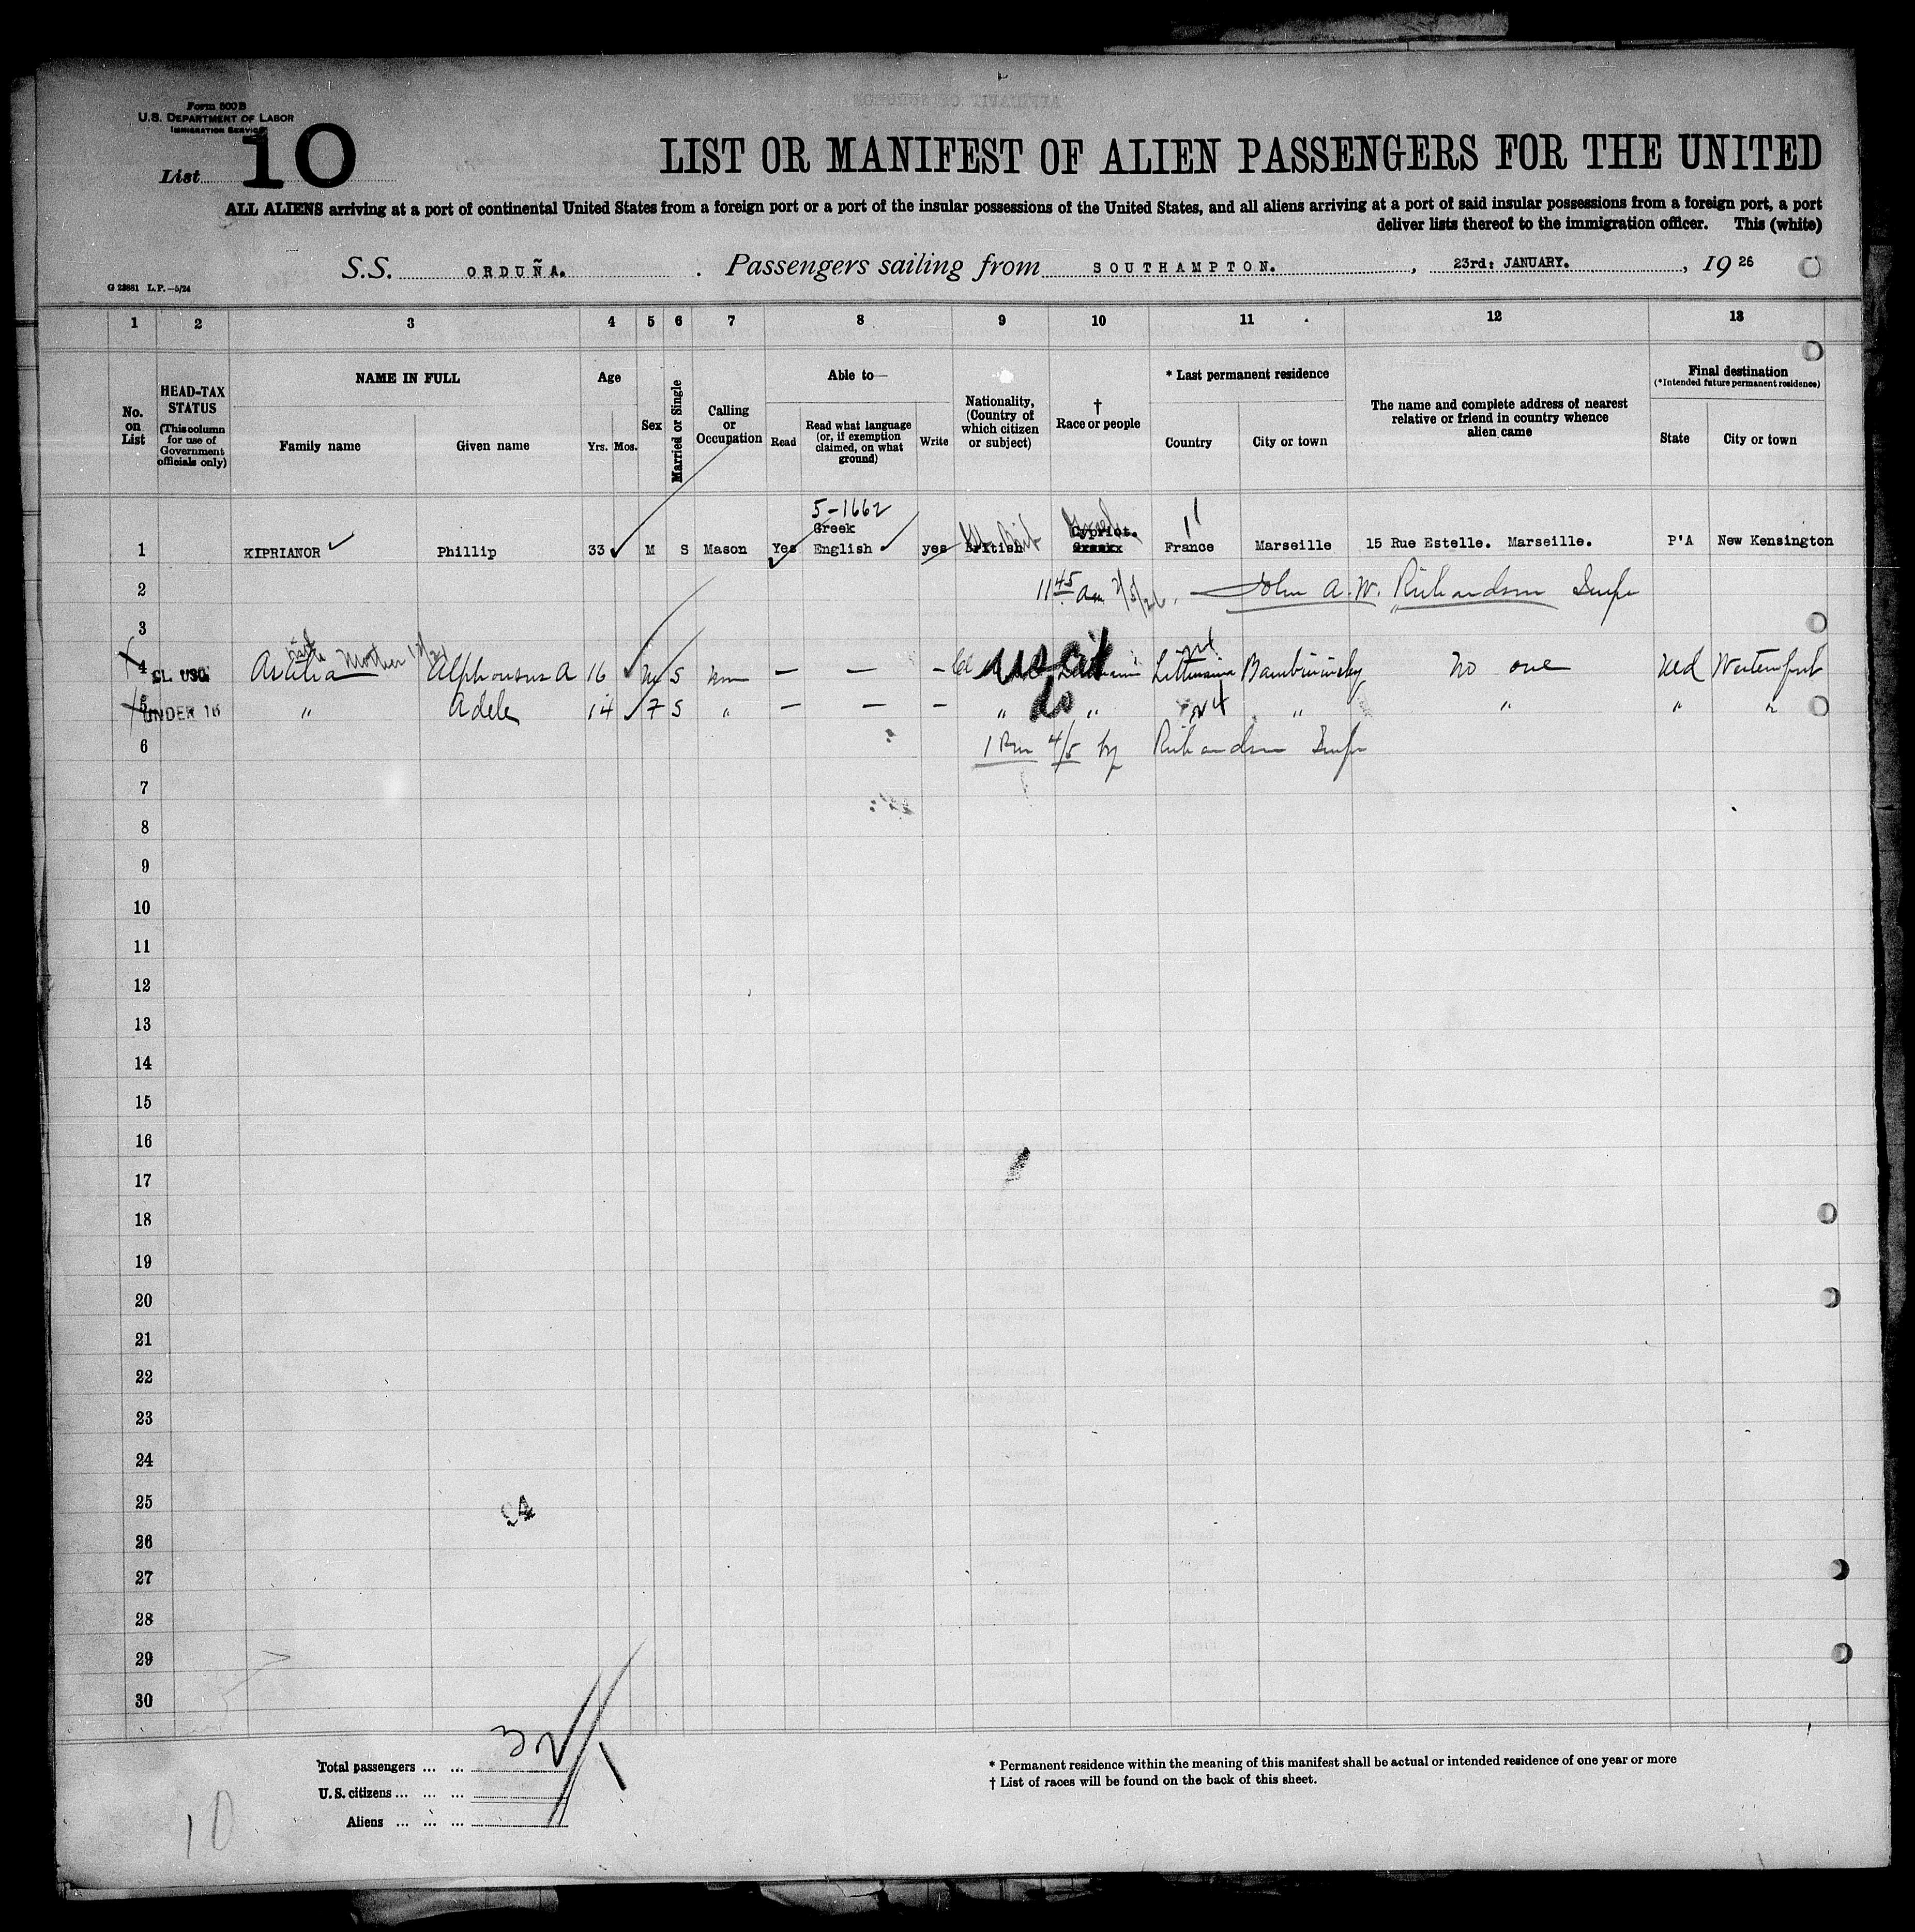 Form 500 B
U.S. DEPARTMENT OF LABOR
IMMIGRATION SERVICE
List 10
LIST OR MANIFEST OF ALIEN PASSENGERS FOR THE UNITED
ALL ALIENS arriving at a port of continental United States from a foreign port or a port of the insular possessions of the United States, and all aliens arriving at a port of said insular possessions from a foreign port, a port
deliver lists thereof to the immigration officer. This (white)
S.S. ORDUÑA. Passengers sailing from SOUTHAMPTON. , 23rd: JANUARY. , 19 26
G 23881 L.P.—5/24
1 2 3 4 5 6 7 8 9 10 11 12 13
No. on List
HEAD-TAX STATUS (This column for use of Government officials only)
NAME IN FULL
Family name Given name
Age
Yrs. Mos.
Sex
Married or Single
Calling or Occupation
Able to—
Read
Read what language (or, if exemption claimed, on what ground)
Write
Nationality, (Country of which citizen or subject)
† Race or people
* Last permanent residence
Country City or town
The name and complete address of nearest relative or friend in country whence alien came
Final destination
(*Intended future permanent residence)
State City or town
5-1662
Greek Cypriot.
1 KIPRIANOR Phillip 33 M S Mason Yes English yes British Greekx France Marseille 15 Rue Estelle. Marseille. P'A New Kensington
2 11 45 am John A. W. Richardson
3
Mother
4 USC Alphonsus A 16 M S — — — US Cit No one Md Westernport
5 UNDER 16 " Adele 14 F S " — — — " do " " " " "
6 1 Pm 4/5 by Richardson
7
8
9
10
11
12
13
14
15
16
17
18
19
20
21
22
23
24
25
26
27
28
29
30
Total passengers ... ...
U.S. citizens ... ... ...
Aliens ... ... ...
* Permanent residence within the meaning of this manifest shall be actual or intended residence of one year or more
† List of races will be found on the back of this sheet.
10